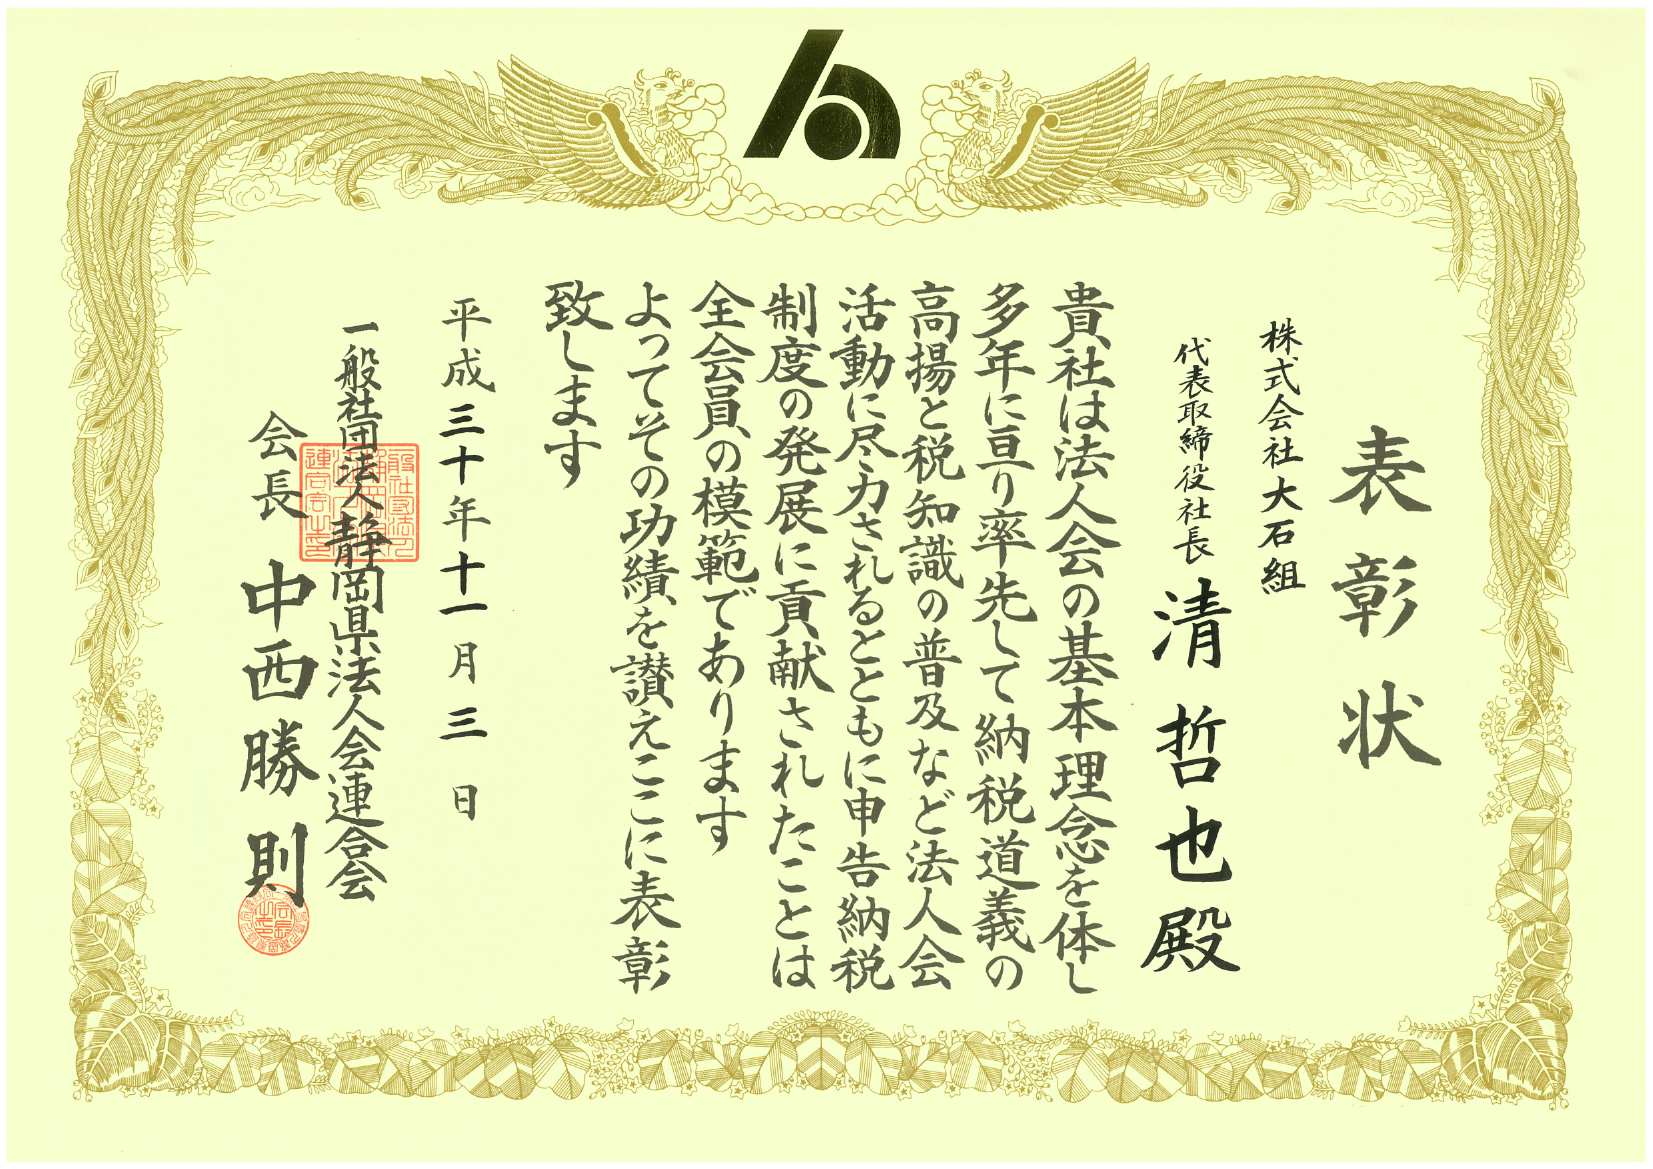 表彰状
株式会社大石組
代表取締役社長 清哲也殿
貴社は法人会の基本理念を体し
多年に亘り率先して納税道義の
高揚と税知識の普及など法人会
活動に尽力されるとともに申告納税
制度の発展に貢献されたことは
全会員の模範であります
よってその功績を讃えここに表彰
致します
平成三十年十一月三日
一般社団法人静岡県法人会連合会
会長 中西勝則